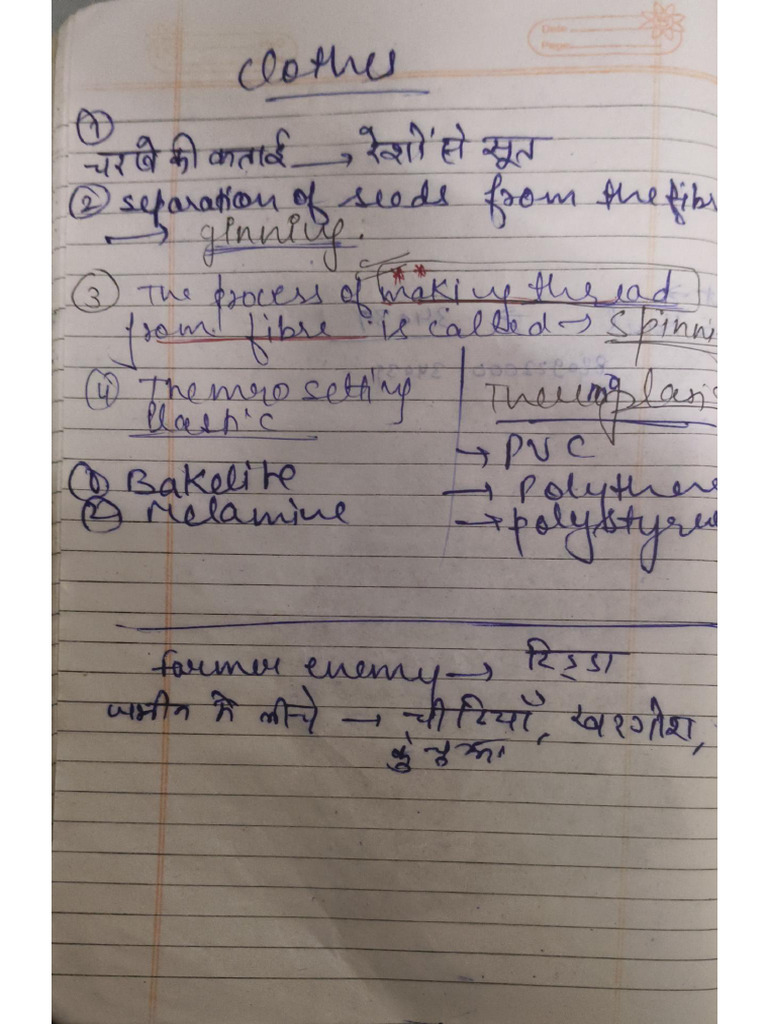 Date
Page
Clothes
①
चरखे की कताई → रेशों से सूत
② separation of seeds from the fibr
→ ginning.
③ The process of making thread
from fibre is called → spinni
④ Themro setting | Thermoplasi
Plastic
→ PVC
① Bakelite → polythene
② Melamine → polystyre
farmer enemy → टिड्डा
जमीन के नीचे → चीटियाँ, खरगोश,